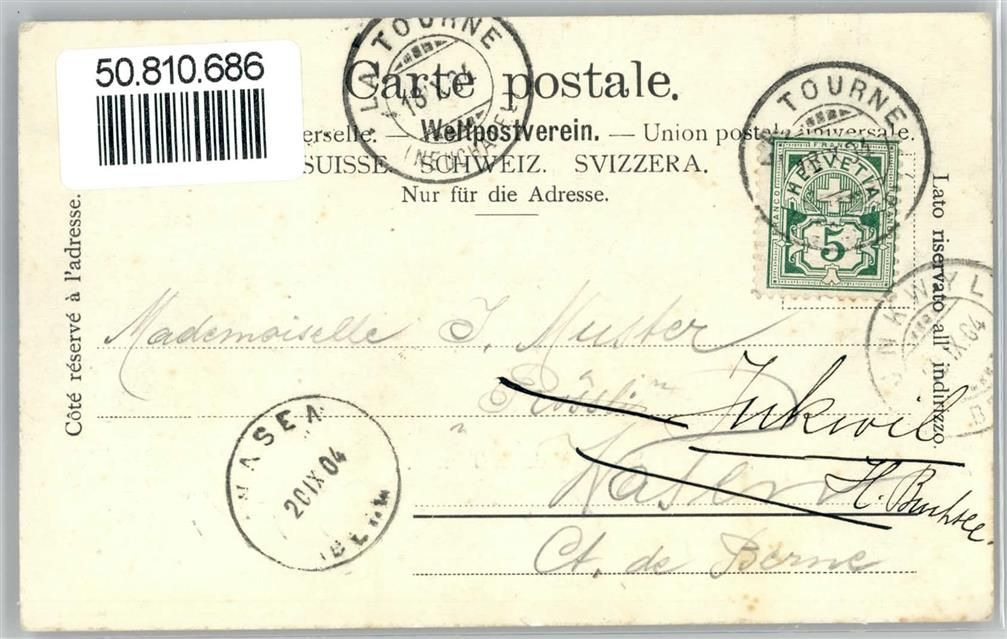 50.810.686
LA TOURNE
(NEUCHATEL)
Carte postale.
Weltpostverein. — Union postale universelle.
SUISSE. SCHWEIZ. SVIZZERA.
Nur für die Adresse.
Côté réservé à l'adresse.
Lato riservato all' indirizzo.
TOURNE
FRANCO
HELVETIA
5
INKWYL
IX.04
Mademoiselle J. Muster
"Rössli"
Inkwil
Wasen
H. Buchsee.
Ct. de Berne
WASEN
20 IX 04